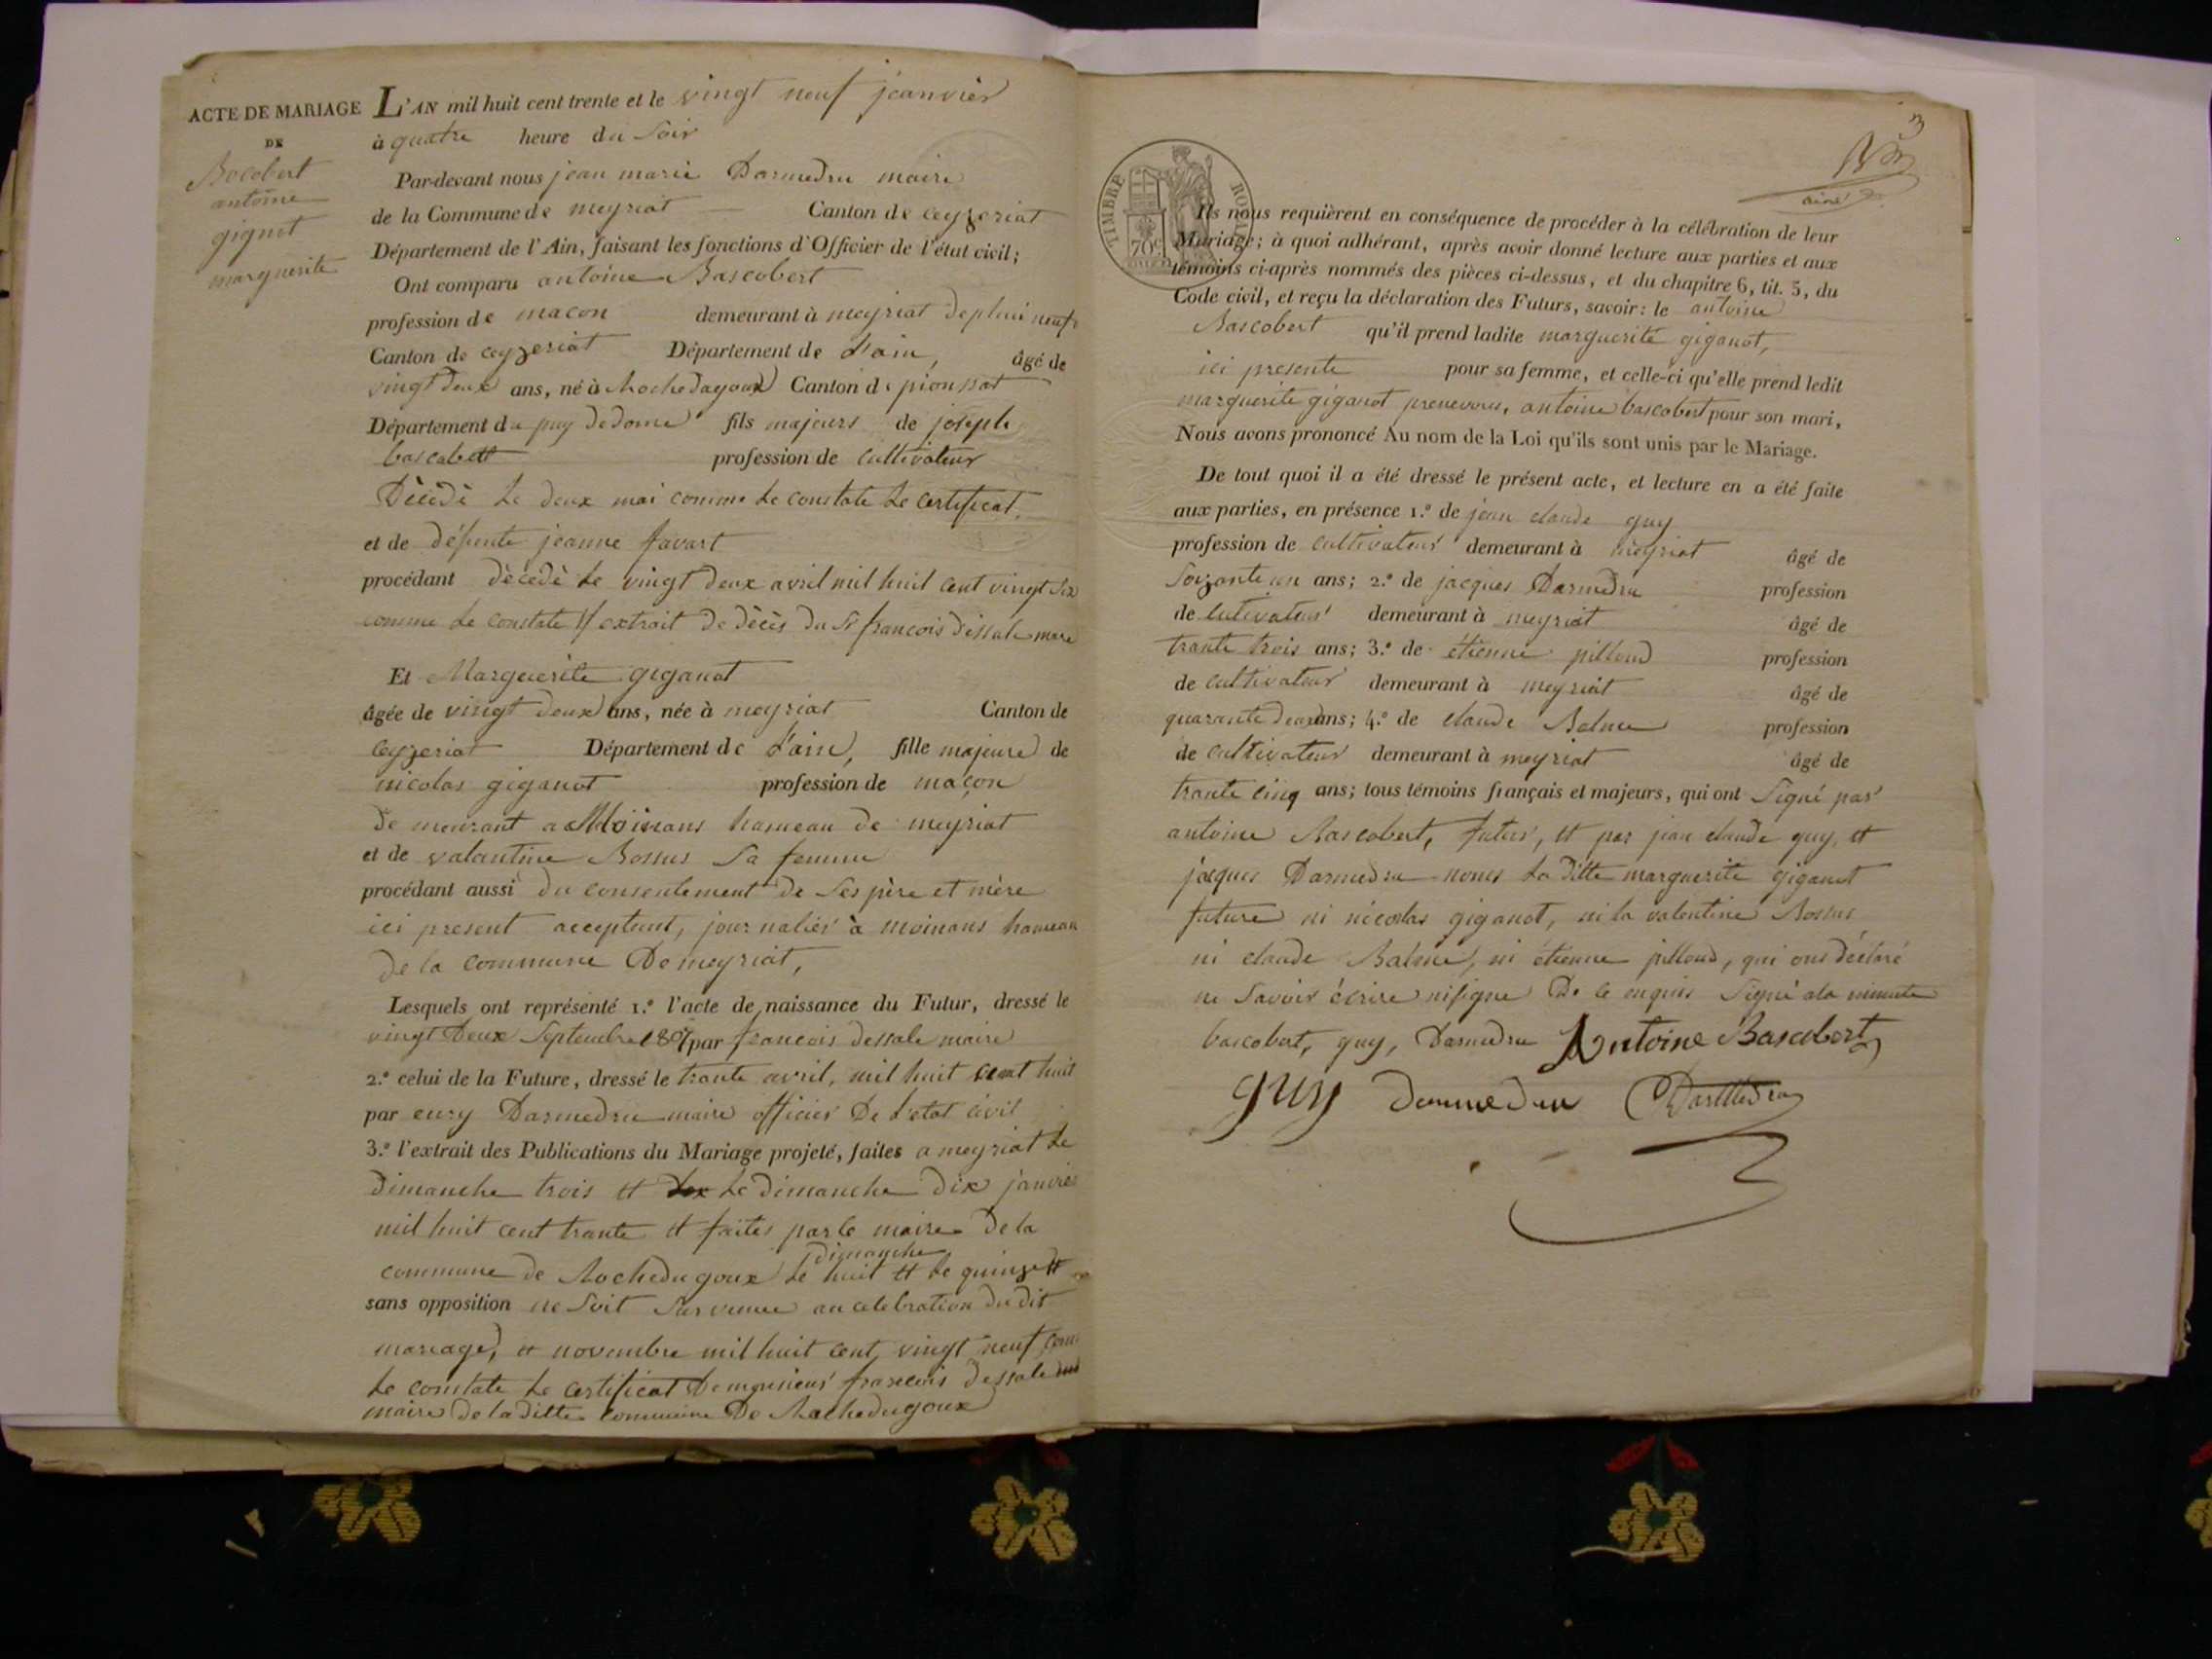 ACTE DE MARIAGE
DE
Bocobert
antoine
gignot
marguerite
L'AN mil huit cent trente et le vingt neuf jeanvier
à quatre heure du Soir
Par-devant nous jean marie Darmedru maire
de la Commune de meyriat Canton de ceyzeriat
Département de l'Ain, faisant les fonctions d'Officier de l'état civil;
Ont comparu antoine Bascobert
profession de macon demeurant à meyriat deplui neuf
Canton de ceyzeriat Département de L'ain, âgé de
vingt deux ans, né à Rochedagoux Canton de pionsat
Département du puy de dome fils majeurs de joseph
bascobert profession de cultivateur
Décédé Le deux mai comme Le constate Le certificat
et de défunte jeanne favart
procédant décédé Le vingt deux avril mil huit cent vingt six
comme Le constate l'extrait de décès du Sr francois dessale maire
Et Marguerite giganot
âgée de vingt deux ans, née à meyriat Canton de
ceyzeriat Département de L'ain, fille majeure de
nicolas giganot profession de maçon
de meurant a Moinans hameau de meyriat
et de valantine Bossus Sa femme
procédant aussi du consentement de Ses père et mère
ici present acceptent, journalier à moinans hameau
de la commune De meyriat,
Lesquels ont représenté 1.° l'acte de naissance du Futur, dressé le
vingt Deux Septembre 1807 par francois dessale maire
2.° celui de la Future, dressé le trante avril, mil huit cent huit
par eury Darmedru maire officier De L'etat civil
3.° l'extrait des Publications du Mariage projeté, faites a meyriat Le
dimanche trois et Le dimanche dix janvier
mil huit cent trante et faites par le maire De la
dimanche
commune de Rochedugoux Le huit et Le quinze et
sans opposition ne Soit Survenue au celebration du dit
mariage, et novembre mil huit cent vingt neuf com
Le constate Le certificat De monsieur francois dessale
maire de la ditte commune De Rochedugoux
3
ainé
TIMBRE ROYAL
70 c
Ils nous requièrent en conséquence de procéder à la célébration de leur
Mariage; à quoi adhérant, après avoir donné lecture aux parties et aux
témoins ci-après nommés des pièces ci-dessus, et du chapitre 6, tit. 5, du
Code civil, et reçu la déclaration des Futurs, savoir: le antoine
Bascobert qu'il prend ladite marguerite giganot,
ici presente pour sa femme, et celle-ci qu'elle prend ledit
marguerite giganot antoine bascobert pour son mari,
Nous avons prononcé Au nom de la Loi qu'ils sont unis par le Mariage.
De tout quoi il a été dressé le présent acte, et lecture en a été faite
aux parties, en présence 1.° de jean claude guy
profession de cultivateur demeurant à meyriat âgé de
Soizante un ans; 2.° de jacques Darmedru profession
de cutivateur demeurant à meyriat âgé de
trante trois ans; 3.° de étienne pilloud profession
de cultivateur demeurant à meyriat âgé de
quarante deux ans; 4.° de claude Balme profession
de cultivateur demeurant à meyriat âgé de
trante cinq ans; tous témoins français et majeurs, qui ont Signé par
antoine Bascobert, futur, et par jean claude guy, et
jacques Darmedru nones La ditte marguerite giganot
future ni nicolas giganot, ni la valentine Bossus
ni claude Balme, ni étienne pilloud, qui ont déclaré
ne Savoir écrire ni signe De ce enquis Signé ala minute
bascobert, guy, Darmedru Antoine Bascobert
guy darmedru Darmedru